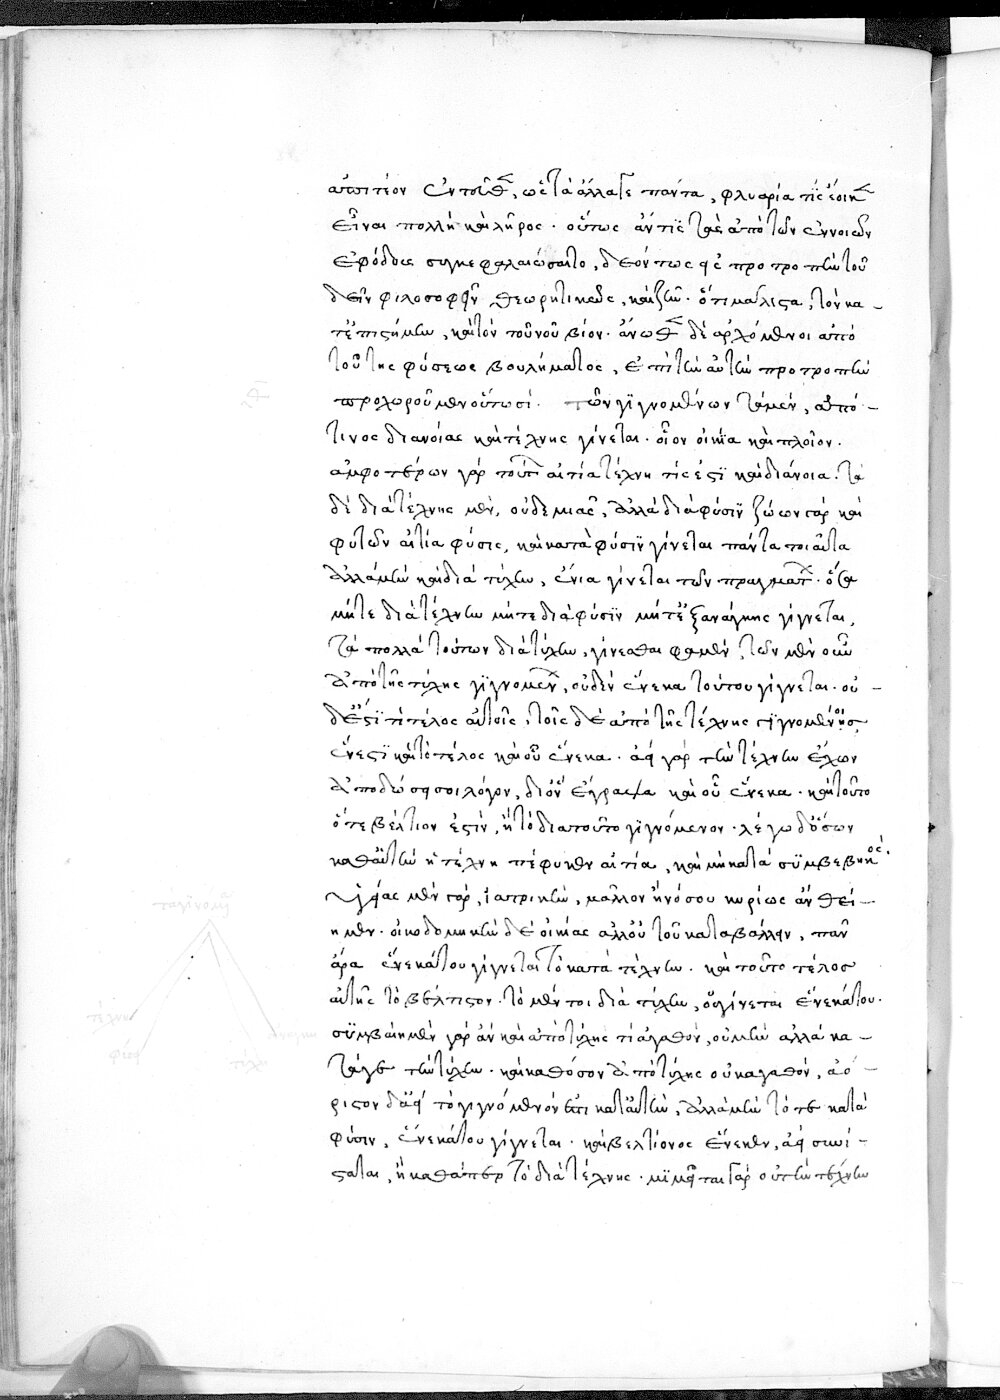 αἰτιατέον ἐντεῦθεν, ὡς τὰ ἄλλα γε πάντα, φλυαρία τίς ἔοικεν
εἶναι πολλὴ καὶ λῆρος. οὕτως ἄν τις τὰς ἀπὸ τῶν ἐννοιῶν
ἐφόδους συγκεφαλαιώσαιτο, δεόντως προτροπὴν τοῦ
δεῖν φιλοσοφεῖν θεωρητικῶς, καὶ ζῆν. ὅτι μάλιστα, τὸν κα-
τ' ἐπιστήμην, καὶ τὸν τοῦ νοῦ βίον. ἄνωθεν δὲ ἀρχόμενοι ἀπὸ
τοῦ τῆς φύσεως βουλήματος, ἐπὶ τὴν αὐτὴν προτροπὴν
προχωροῦμεν οὑτωσί. τῶν γιγνομένων τὰ μέν, ἀπό-
τινος διανοίας καὶ τέχνης γίνεται. οἷον οἰκία καὶ πλοῖον.
ἀμφοτέρων γὰρ τούτων αἰτία τέχνη τίς ἐστι καὶ διάνοια. τὰ
δὲ διὰ τέχνης μὲν, οὐδεμιᾶς, ἀλλὰ διὰ φύσιν ζώων γὰρ καὶ
φυτῶν αἰτία φύσις, καὶ κατὰ φύσιν γίνεται πάντα τοιαῦτα
ἀλλὰ μὴν καὶ διὰ τύχην, ἔνια γίνεται τῶν πραγμάτων. ὅσα
μήτε διὰ τέχνην μήτε διὰ φύσιν μήτ' ἐξ ἀνάγκης γίγνεται,
τὰ πολλὰ τούτων διὰ τύχην, γίνεσθαι φαμὲν, τῶν μὲν οὖν
ἀπὸ τῆς τύχης γιγνομένων, οὐδὲν ἕνεκα τούτου γίγνεται. οὐ-
δ' ἔστι τι τέλος αὐτοῖς, τοῖς δὲ ἀπὸ τῆς τέχνης γιγνομένοις
ἔνεστι καὶ τὸ τέλος καὶ οὗ ἕνεκα. ἀεὶ γὰρ τὴν τέχνην ἔχων
ἀποδώσει σοι λόγον, δι' ὃν ἔγραψα καὶ οὗ ἕνεκα. καὶ τοῦτο
ὅτε βέλτιον ἐστίν, ἢ τὸ διὰ τοῦτο γιγνόμενον. λέγω δ' ὅσων
καθ' αὑτὴν ἡ τέχνη πέφυκεν αἰτία, καὶ μὴ κατὰ συμβεβηκός.
ὑγείας μὲν γὰρ, ἰατρικὴν, μᾶλλον ἢ νόσου κυρίως ἂν θεί-
ημεν. οἰκοδομικὴν δὲ οἰκίας ἀλλ' οὐ τοῦ καταβάλλειν, πᾶν
ἄρα ἕνεκά του γίγνεται τὸ κατὰ τέχνην. καὶ τοῦτο τέλος
αὐτῆς τὸ βέλτιστον. τὸ μέντοι διὰ τύχην, οὐ γίνεται ἕνεκά του.
συμβαίη μὲν γὰρ ἂν καὶ ἀπὸ τύχης τι ἀγαθόν, οὐ μὴν ἀλλὰ κα-
τά γε τὴν τύχην. καὶ καθόσον ἀπὸ τύχης οὐκ ἀγαθόν, ἀό-
ριστον δ' ἀεὶ τὸ γιγνόμενόν ἐστι κατ' αὐτὴν, ἀλλὰ μὴν τό γε κατὰ
φύσιν, ἕνεκά του γίγνεται. καὶ βελτίονος ἕνεκεν, ἀεὶ συνί-
σταται, ἢ καθάπερ τὸ διὰ τέχνης. μιμεῖται γὰρ οὐ τὴν τέχνην
τὰ γινόμενα
τέχνη
φύσις
τύχη